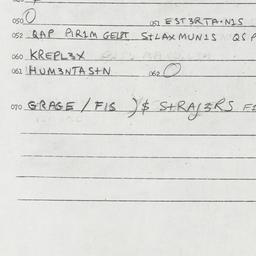 050 O 051 EST3RTA·N1S
052 QAP PIR1M GELPT S+LAXMUN1S QS P
060 KREPL3X
061 HUM3NTAS+N 062 O
070 GRAGE / FIS )$ S+RAJ3RS